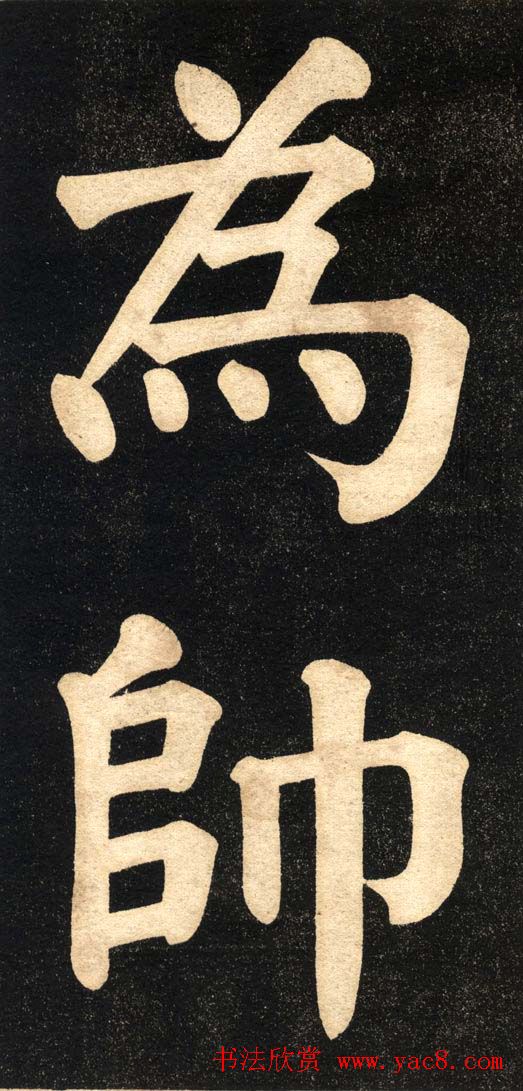 為
帥
书法欣赏 www.yac8.com